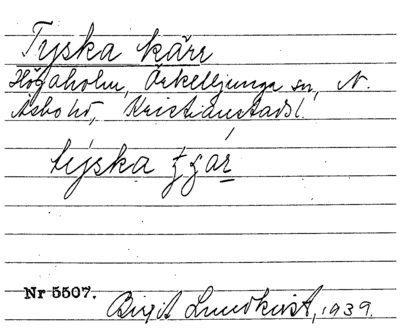 Tyska kärr
Högaholm, Örkelljunga sn, N.
Åsbo hd, Kristianstads l.
týska
Nr 5507.
Birgit Lundkvist, 1939.